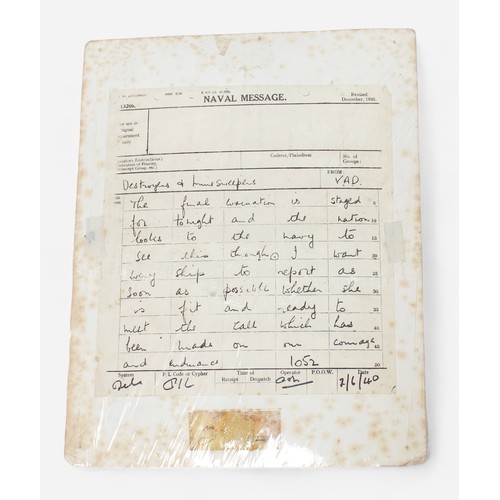 NAVAL MESSAGE.
Revised
December, 1935.
Codress/Plaindress
No. of
Groups:
FROM:
Destroyers & minesweepers VAD.
The final evacuation is staged 5
for tonight and the nation 10
looks to the navy to 15
see this through. I want 20
every ship to report as 25
soon as possible whether she 30
is fit and ready to 35
meet the call which has 40
been made on our courage 45
and endurance 1052 50
System P/L Code or Cypher Time of Operator P.O.O.W. Date
Receipt Despatch
P/L 2/6/40